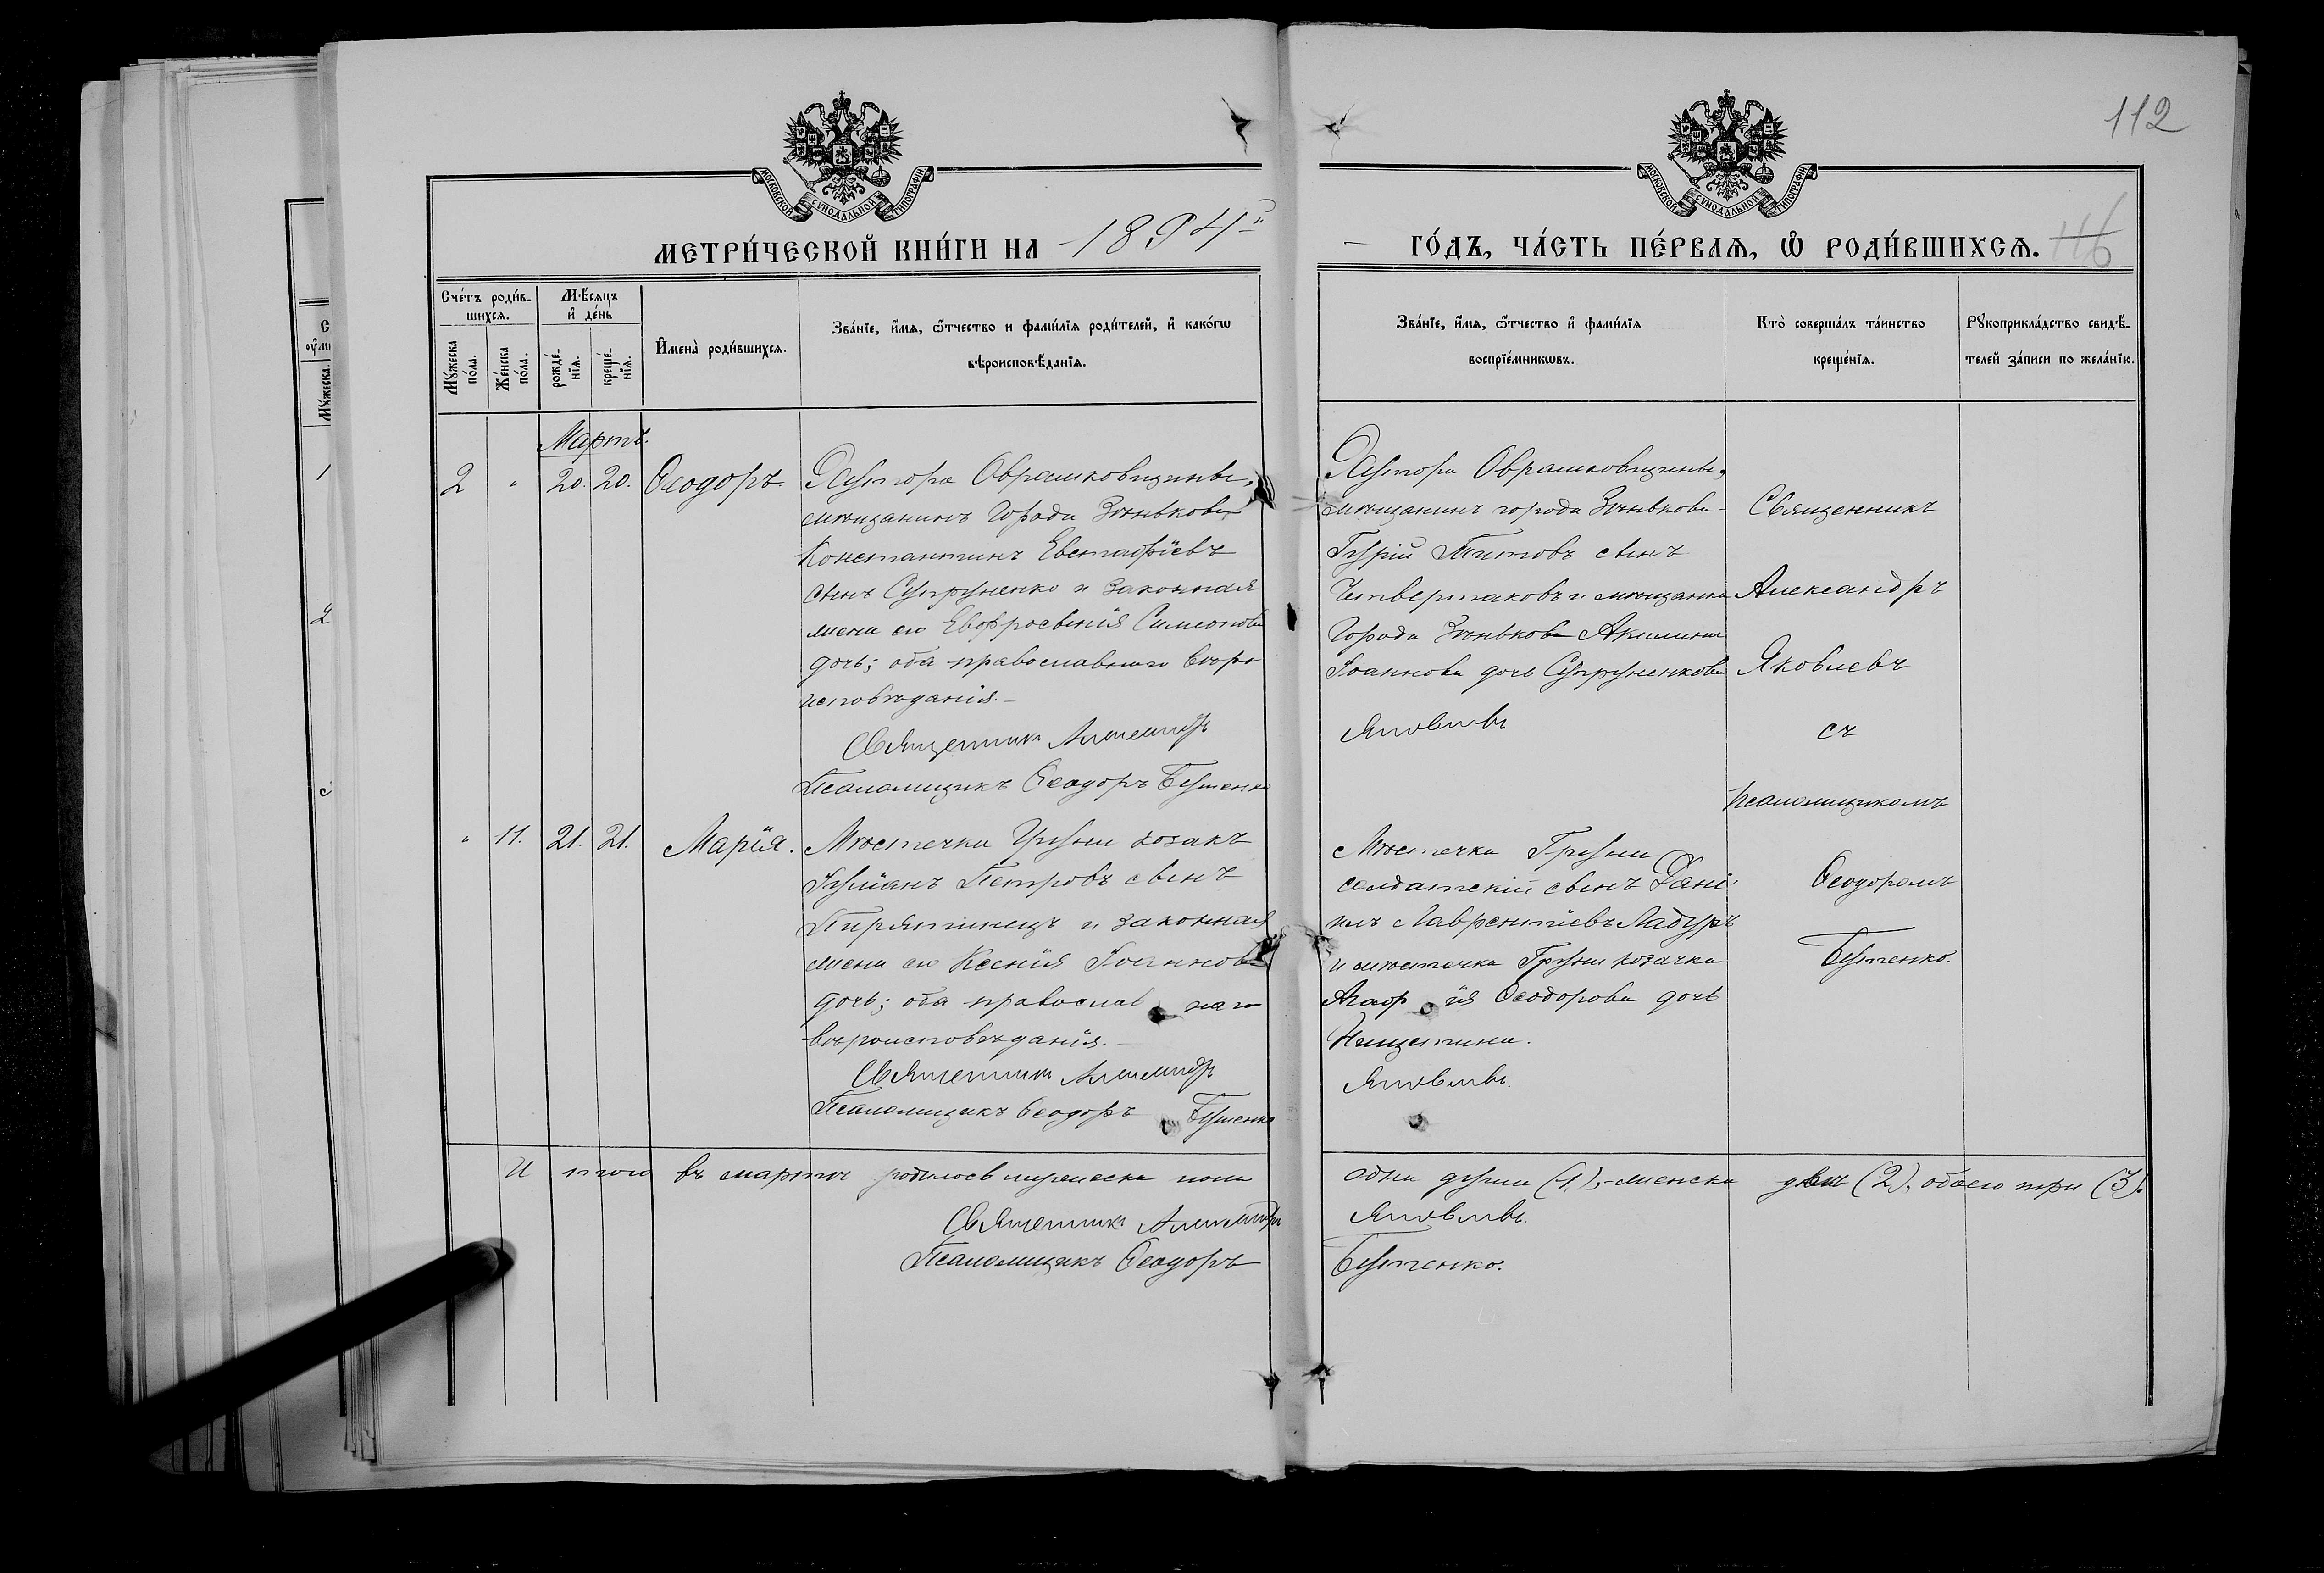 112
МОСКОВСКОЙ СѴНОДАЛЬНОЙ ТИПОГРАФІИ
МОСКОВСКОЙ СѴНОДАЛЬНОЙ ТИПОГРАФІИ
МЕТРИ́ЧЕСКОЙ КНИ́ГИ НА 1894й
ГО́ДЪ, ЧА́СТЬ ПЕ́РВАѦ, Ѽ РОДИ́ВШИХСѦ. 116
Сче́тъ роди́в-
шихсѧ.
Мꙋ́жеска по́ла.
Же́нска по́ла.
М́ѣсѧцъ
и҆ де́нь
рожде́-
нїѧ.
креще́-
нїѧ.
И҆мена̀ роди́вшихсѧ.
Зва́нїе, и҆́мѧ, ѻ҆́тчество и фами́лїѧ роди́телей, и҆ како́гѡ
вѣроисповѣ́данїѧ.
Зва́нїе, и҆́мѧ, ѻ҆́тчество и҆ фами́лїѧ
воспрїе́мникѡвъ.
Кто̀ соверша́лъ та́инство
креще́нїѧ.
Рꙋкоприкла́дство свидѣ́-
телей за́писи по жела́нїю.
Мартъ.
2 " 20. 20. Ѳеодоръ.
Хутора Абрамковщины,
мѣщанинъ города Зѣнькова
Константинъ Евстафіевъ
сынъ Супруненко и законная
жена его Евфросинія Симеонова
дочь; оба православнаго вѣро
исповѣданія.
Священникъ Александръ
Псаломщикъ Ѳеодоръ Бутенко
Хутора Абрамковщины,
мѣщанинъ города Зѣнькова
Гурій Титовъ сынъ
Четвертаковъ и мѣщанка
города Зѣнькова Акилина
Іоаннова дочь Супруненкова
Яковлевъ
Священникъ
Александръ
Яковлевъ
съ
псаломщикомъ
Ѳеодоромъ
Бутенко.
" 11. 21. 21. Марія.
Мѣстечка Груни козакъ
Іуліанъ Петровъ сынъ
Пирятинецъ и законная
жена его Ксенія Іоаннова
дочь; оба православнаго
вѣроисповѣданія.
Священникъ Александръ
Псаломщикъ Ѳеодоръ Бутенко
Мѣстечка Груни
солдатскій сынъ Дані-
илъ Лаврентіевъ Ладуръ
и мѣстечка Груни козачка
Ѳеодорова дочь
Яковлевъ.
Итого въ мартѣ родилось мужеска пола одна душа (1), женска двѣ (2), обоего три (3).
Священникъ Александръ Яковлевъ.
Псаломщикъ Ѳеодоръ Бутенко.